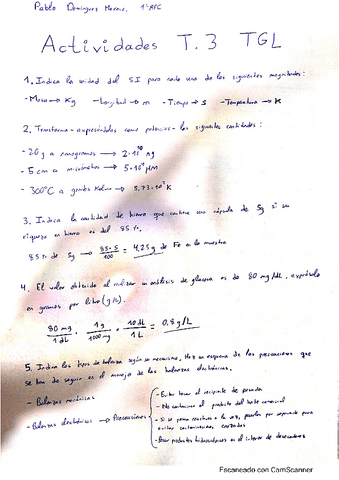 Pablo Domínguez Moreno, 1º APC
Actividades T.3 TGL
1. Indica la unidad del SI para cada una de las siguientes magnitudes:
- Masa → Kg - Longitud → m - Tiempo → s - Temperatura → K
2. Transforma - expresándolas como potencias - las siguientes cantidades:
- 20 g a nanogramos → 2·10¹⁰ ng
- 5 cm a micrómetros → 5·10⁴ μm
- 300ºC a grados Kelvin → 5,73·10² K
3. Indica la cantidad de hierro que contiene una cápsula de 5g si su
riqueza en hierro es del 85%.
85% de 5g → 85·5/100 = 4,25g de Fe en la muestra
4. El valor obtenido al realizar un análisis de glucosa es de 80 mg/dL, exprésalo
en gramos por litro (g/L).
80 mg/1 dL · 1 g/1000 mg · 10 dL/1 L = 0,8 g/L
5. Indica los tipos de balanza según su mecanismo. Haz un esquema de las precauciones que
se han de seguir en el manejo de las balanzas electrónicas.
- Balanzas mecánicas
- Balanzas electrónicas → Precauciones
- Evitar tocar el recipiente de pesada
- No contaminar el producto del bote comercial
- Si se pesan reactivos a la vez, pesarlos por separado para
evitar contaminaciones cruzadas
- Pesar productos higroscópicos en el interior de desecadores
Escaneado con CamScanner